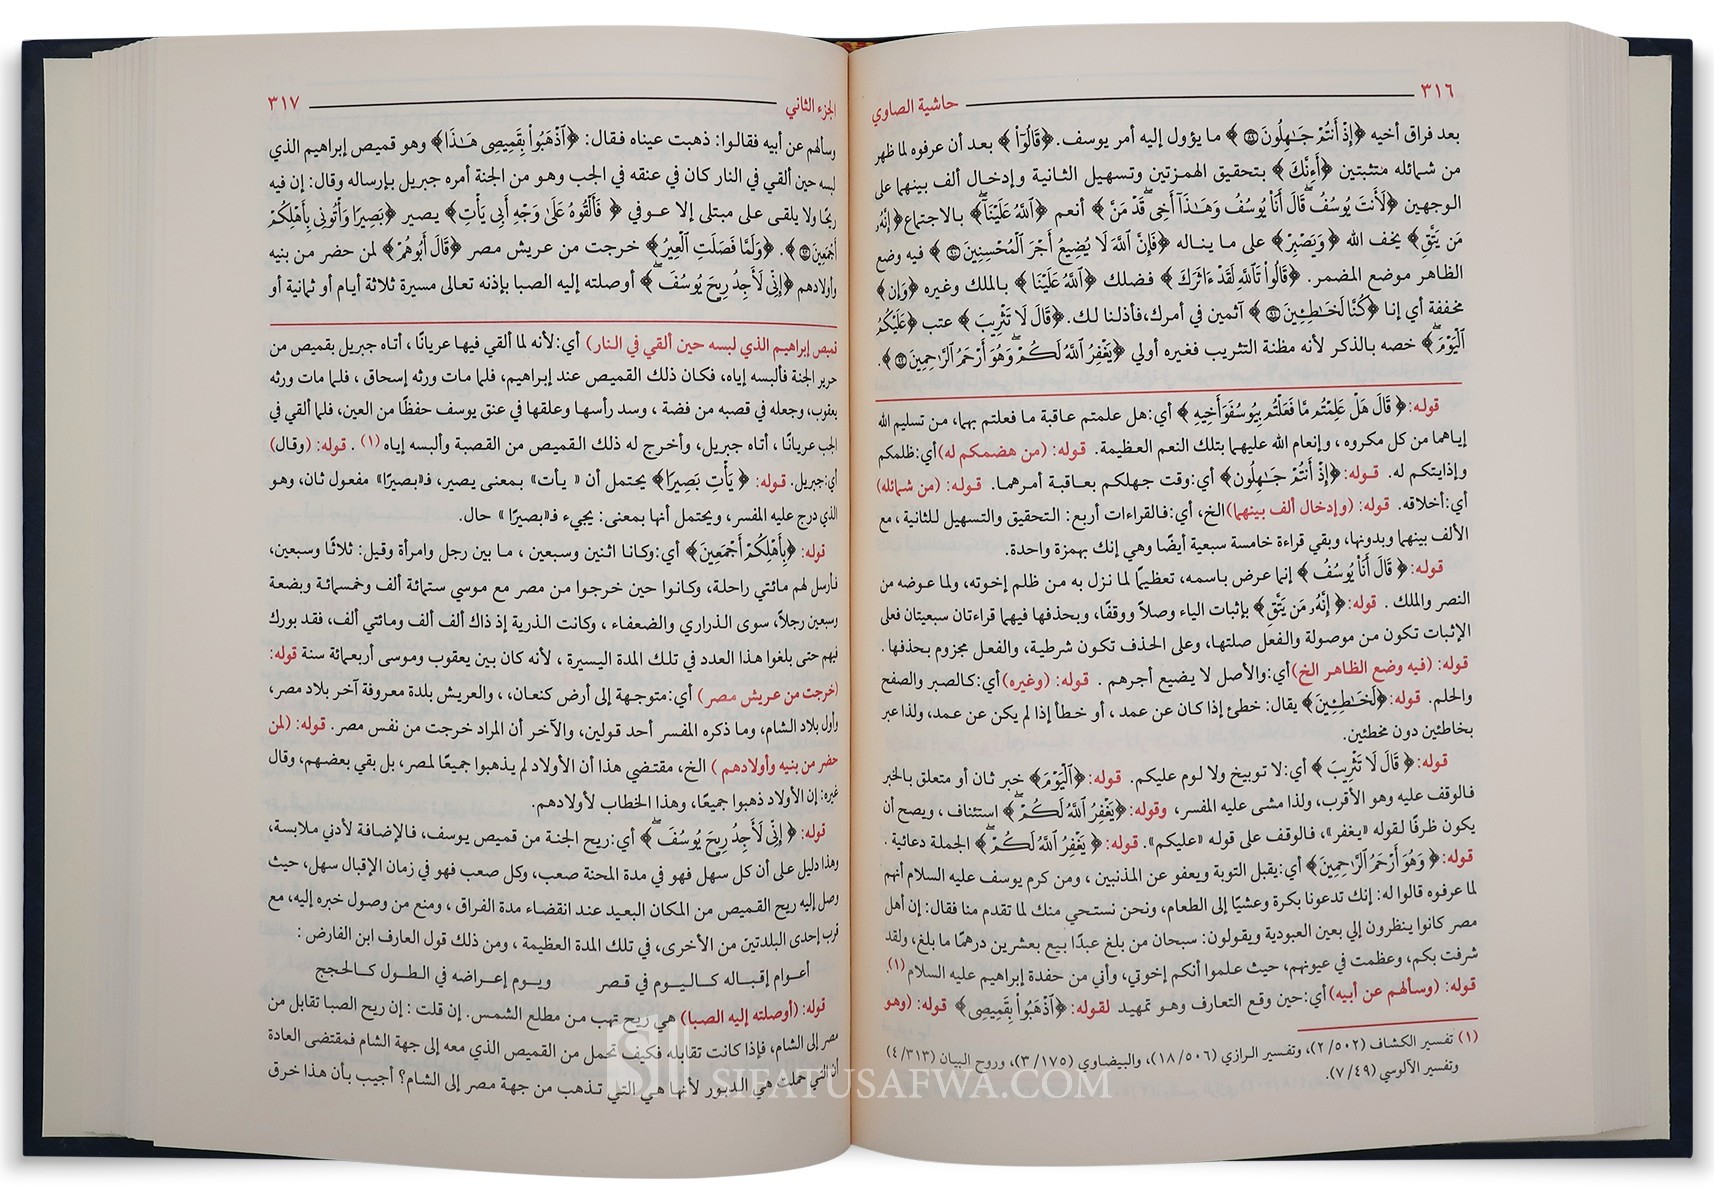 ٣١٦ حاشية الصاوي
بعد فراق أخيه ﴿إِذْ أَنتُمْ جَـٰهِلُونَ ۝٨٩﴾ ما يؤول إليه أمر يوسف. ﴿قَالُوٓا۟﴾ بعد أن عرفوه لما ظهر
من شمائله متثبتين ﴿أَءِنَّكَ﴾ بتحقيق الهمزتين وتسهيل الثانية وإدخال ألف بينهما على
الوجهين ﴿لَأَنتَ يُوسُفُ ۖ قَالَ أَنَا۠ يُوسُفُ وَهَـٰذَآ أَخِى ۖ قَدْ مَنَّ﴾ أنعم ﴿ٱللَّهُ عَلَيْنَآ ۖ﴾ بالاجتماع ﴿إِنَّهُۥ
مَن يَتَّقِ﴾ يخف الله ﴿وَيَصْبِرْ﴾ على ما يناله ﴿فَإِنَّ ٱللَّهَ لَا يُضِيعُ أَجْرَ ٱلْمُحْسِنِينَ ۝٩٠﴾ فيه وضع
الظاهر موضع المضمر. ﴿قَالُوا۟ تَٱللَّهِ لَقَدْ ءَاثَرَكَ﴾ فضلك ﴿ٱللَّهُ عَلَيْنَا﴾ بالملك وغيره ﴿وَإِن﴾
مخففة أي إنا ﴿كُنَّا لَخَـٰطِـِٔينَ ۝٩١﴾ آثمين في أمرك، فأذلنا لك. ﴿قَالَ لَا تَثْرِيبَ﴾ عتب ﴿عَلَيْكُمُ
ٱلْيَوْمَ ۖ﴾ خصه بالذكر لأنه مظنة التثريب فغيره أولي ﴿يَغْفِرُ ٱللَّهُ لَكُمْ ۖ وَهُوَ أَرْحَمُ ٱلرَّٰحِمِينَ ۝٩٢﴾.
قوله: ﴿قَالَ هَلْ عَلِمْتُم مَّا فَعَلْتُم بِيُوسُفَ وَأَخِيهِ﴾ أي: هل علمتم عاقبة ما فعلتم بهما، من تسليم الله
إياهما من كل مكروه، وإنعام الله عليهما بتلك النعم العظيمة. قوله: (من هضمكم له) أي: ظلمكم
وإذايتكم له. قوله: ﴿إِذْ أَنتُمْ جَـٰهِلُونَ﴾ أي: وقت جهلكم بعاقبة أمرهما. قوله: (من شمائله)
أي: أخلاقه. قوله: (وإدخال ألف بينهما) الخ، أي: فالقراءات أربع: التحقيق والتسهيل للثانية، مع
الألف بينهما وبدونها، وبقي قراءة خامسة سبعية أيضًا وهي إنك بهمزة واحدة.
قوله: ﴿قَالَ أَنَا۠ يُوسُفُ﴾ إنما عرض باسمه، تعظيمًا لما نزل به من ظلم إخوته، ولما عوضه من
النصر والملك. قوله: ﴿إِنَّهُۥ مَن يَتَّقِ﴾ بإثبات الياء وصلاً ووقفًا، وبحذفها فيهما قراءتان سبعيتان فعلى
الإثبات تكون من موصولة والفعل صلتها، وعلى الحذف تكون شرطية، والفعل مجزوم بحذفها.
قوله: (فيه وضع الظاهر الخ) أي: والأصل لا يضيع أجرهم. قوله: (وغيره) أي: كالصبر والصفح
والحلم. قوله: ﴿لَخَـٰطِـِٔينَ﴾ يقال: خطئ إذا كان عن عمد، أو خطأ إذا لم يكن عن عمد، ولذا عبر
بخاطئين دون مخطئين.
قوله: ﴿قَالَ لَا تَثْرِيبَ﴾ أي: لا توبيخ ولا لوم عليكم. قوله: ﴿ٱلْيَوْمَ﴾ خبر ثان أو متعلق بالخبر
فالوقف عليه وهو الأقرب، ولذا مشى عليه المفسر، وقوله: ﴿يَغْفِرُ ٱللَّهُ لَكُمْ ۖ﴾ استئناف، ويصح أن
يكون ظرفًا لقوله «يغفر»، فالوقف على قوله «عليكم». قوله: ﴿يَغْفِرُ ٱللَّهُ لَكُمْ ۖ﴾ الجملة دعائية.
قوله: ﴿وَهُوَ أَرْحَمُ ٱلرَّٰحِمِينَ﴾ أي: يقبل التوبة ويعفو عن المذنبين، ومن كرم يوسف عليه السلام أنهم
لما عرفوه قالوا له: إنك تدعونا بكرة وعشيًا إلى الطعام، ونحن نستحي منك لما تقدم منا فقال: إن أهل
مصر كانوا ينظرون إلي بعين العبودية ويقولون: سبحان من بلغ عبدًا بيع بعشرين درهمًا ما بلغ، ولقد
شرفت بكم، وعظمت في عيونهم، حيث علموا أنكم إخوتي، وأني من حفدة إبراهيم عليه السلام (١).
قوله: (وسألهم عن أبيه) أي: حين وقع التعارف وهو تمهيد لقوله: ﴿ٱذْهَبُوا۟ بِقَمِيصِى﴾ قوله: (وهو
(١) تفسير الكشاف (٢/٥٠٢)، وتفسير الرازي (١٨/٥٠٦)، والبيضاوي (٣/١٧٥)، وروح البيان (٤/٣١٣)
وتفسير الآلوسي (٧/٤٩).
الجزء الثاني ٣١٧
وسألهم عن أبيه فقالوا: ذهبت عيناه فقال: ﴿ٱذْهَبُوا۟ بِقَمِيصِى هَـٰذَا﴾ وهو قميص إبراهيم الذي
لبسه حين ألقي في النار كان في عنقه في الجب وهو من الجنة أمره جبريل بإرساله وقال: إن فيه
ريحًا ولا يلقى على مبتلى إلا عوفي ﴿فَأَلْقُوهُ عَلَىٰ وَجْهِ أَبِى يَأْتِ﴾ يصير ﴿بَصِيرًا وَأْتُونِى بِأَهْلِكُمْ
أَجْمَعِينَ ۝٩٣﴾. ﴿وَلَمَّا فَصَلَتِ ٱلْعِيرُ﴾ خرجت من عريش مصر ﴿قَالَ أَبُوهُمْ﴾ لمن حضر من بنيه
وأولادهم ﴿إِنِّى لَأَجِدُ رِيحَ يُوسُفَ ۖ﴾ أوصلته إليه الصبا بإذنه تعالى مسيرة ثلاثة أيام أو ثمانية أو
قميص إبراهيم الذي لبسه حين ألقي في النار) أي: لأنه لما ألقي فيها عريانًا، أتاه جبريل بقميص من
حرير الجنة فألبسه إياه، فكان ذلك القميص عند إبراهيم، فلما مات ورثه إسحاق، فلما مات ورثه
يعقوب، وجعله في قصبه من فضة، وسد رأسها وعلقها في عنق يوسف حفظًا من العين، فلما ألقي في
الجب عريانًا، أتاه جبريل، وأخرج له ذلك القميص من القصبة وألبسه إياه (١). قوله: (وقال)
أي: جبريل. قوله: ﴿يَأْتِ بَصِيرًا﴾ يحتمل أن «يأت» بمعنى يصير، فـ«بصيرًا» مفعول ثان، وهو
الذي درج عليه المفسر، ويحتمل أنها بمعنى: يجيء فـ«بصيرًا» حال.
قوله: ﴿بِأَهْلِكُمْ أَجْمَعِينَ﴾ أي: وكانا اثنين وسبعين، ما بين رجل وامرأة وقيل: ثلاثًا وسبعين،
فأرسل لهم مائتي راحلة، وكانوا حين خرجوا من مصر مع موسي ستمائة ألف وخمسمائة وبضعة
وسبعين رجلاً، سوى الذراري والضعفاء، وكانت الذرية إذ ذاك ألف ألف ومائتي ألف، فقد بورك
فيهم حتى بلغوا هذا العدد في تلك المدة اليسيرة، لأنه كان بين يعقوب وموسى أربعمائة سنة قوله:
(خرجت من عريش مصر) أي: متوجهة إلى أرض كنعان،، والعريش بلدة معروفة آخر بلاد مصر،
وأول بلاد الشام، وما ذكره المفسر أحد قولين، والآخر أن المراد خرجت من نفس مصر. قوله: (لمن
حضر من بنيه وأولادهم) الخ، مقتضي هذا أن الأولاد لم يذهبوا جميعًا لمصر، بل بقي بعضهم، وقال
غيره: إن الأولاد ذهبوا جميعًا، وهذا الخطاب لأولادهم.
قوله: ﴿إِنِّى لَأَجِدُ رِيحَ يُوسُفَ ۖ﴾ أي: ريح الجنة من قميص يوسف، فالإضافة لأدني ملابسة،
وهذا دليل على أن كل سهل فهو في مدة المحنة صعب، وكل صعب فهو في زمان الإقبال سهل، حيث
وصل إليه ريح القميص من المكان البعيد عند انقضاء مدة الفراق، ومنع من وصول خبره إليه، مع
قرب إحدى البلدتين من الأخرى، في تلك المدة العظيمة، ومن ذلك قول العارف ابن الفارض:
أعوام إقباله كاليوم في قصر ويوم إعراضه في الطول كالحجج
قوله: (أوصلته إليه الصبا) هي ريح تهب من مطلع الشمس. إن قلت: إن ريح الصبا تقابل من
مصر إلى الشام، فإذا كانت تقابله فكيف تحمل من القميص الذي معه إلى جهة الشام فمقتضى العادة
أن التي حملت هي الدبور لأنها هي التي تذهب من جهة مصر إلى الشام؟ أجيب بأن هذا خرق
SIFATUSAFWA.COM